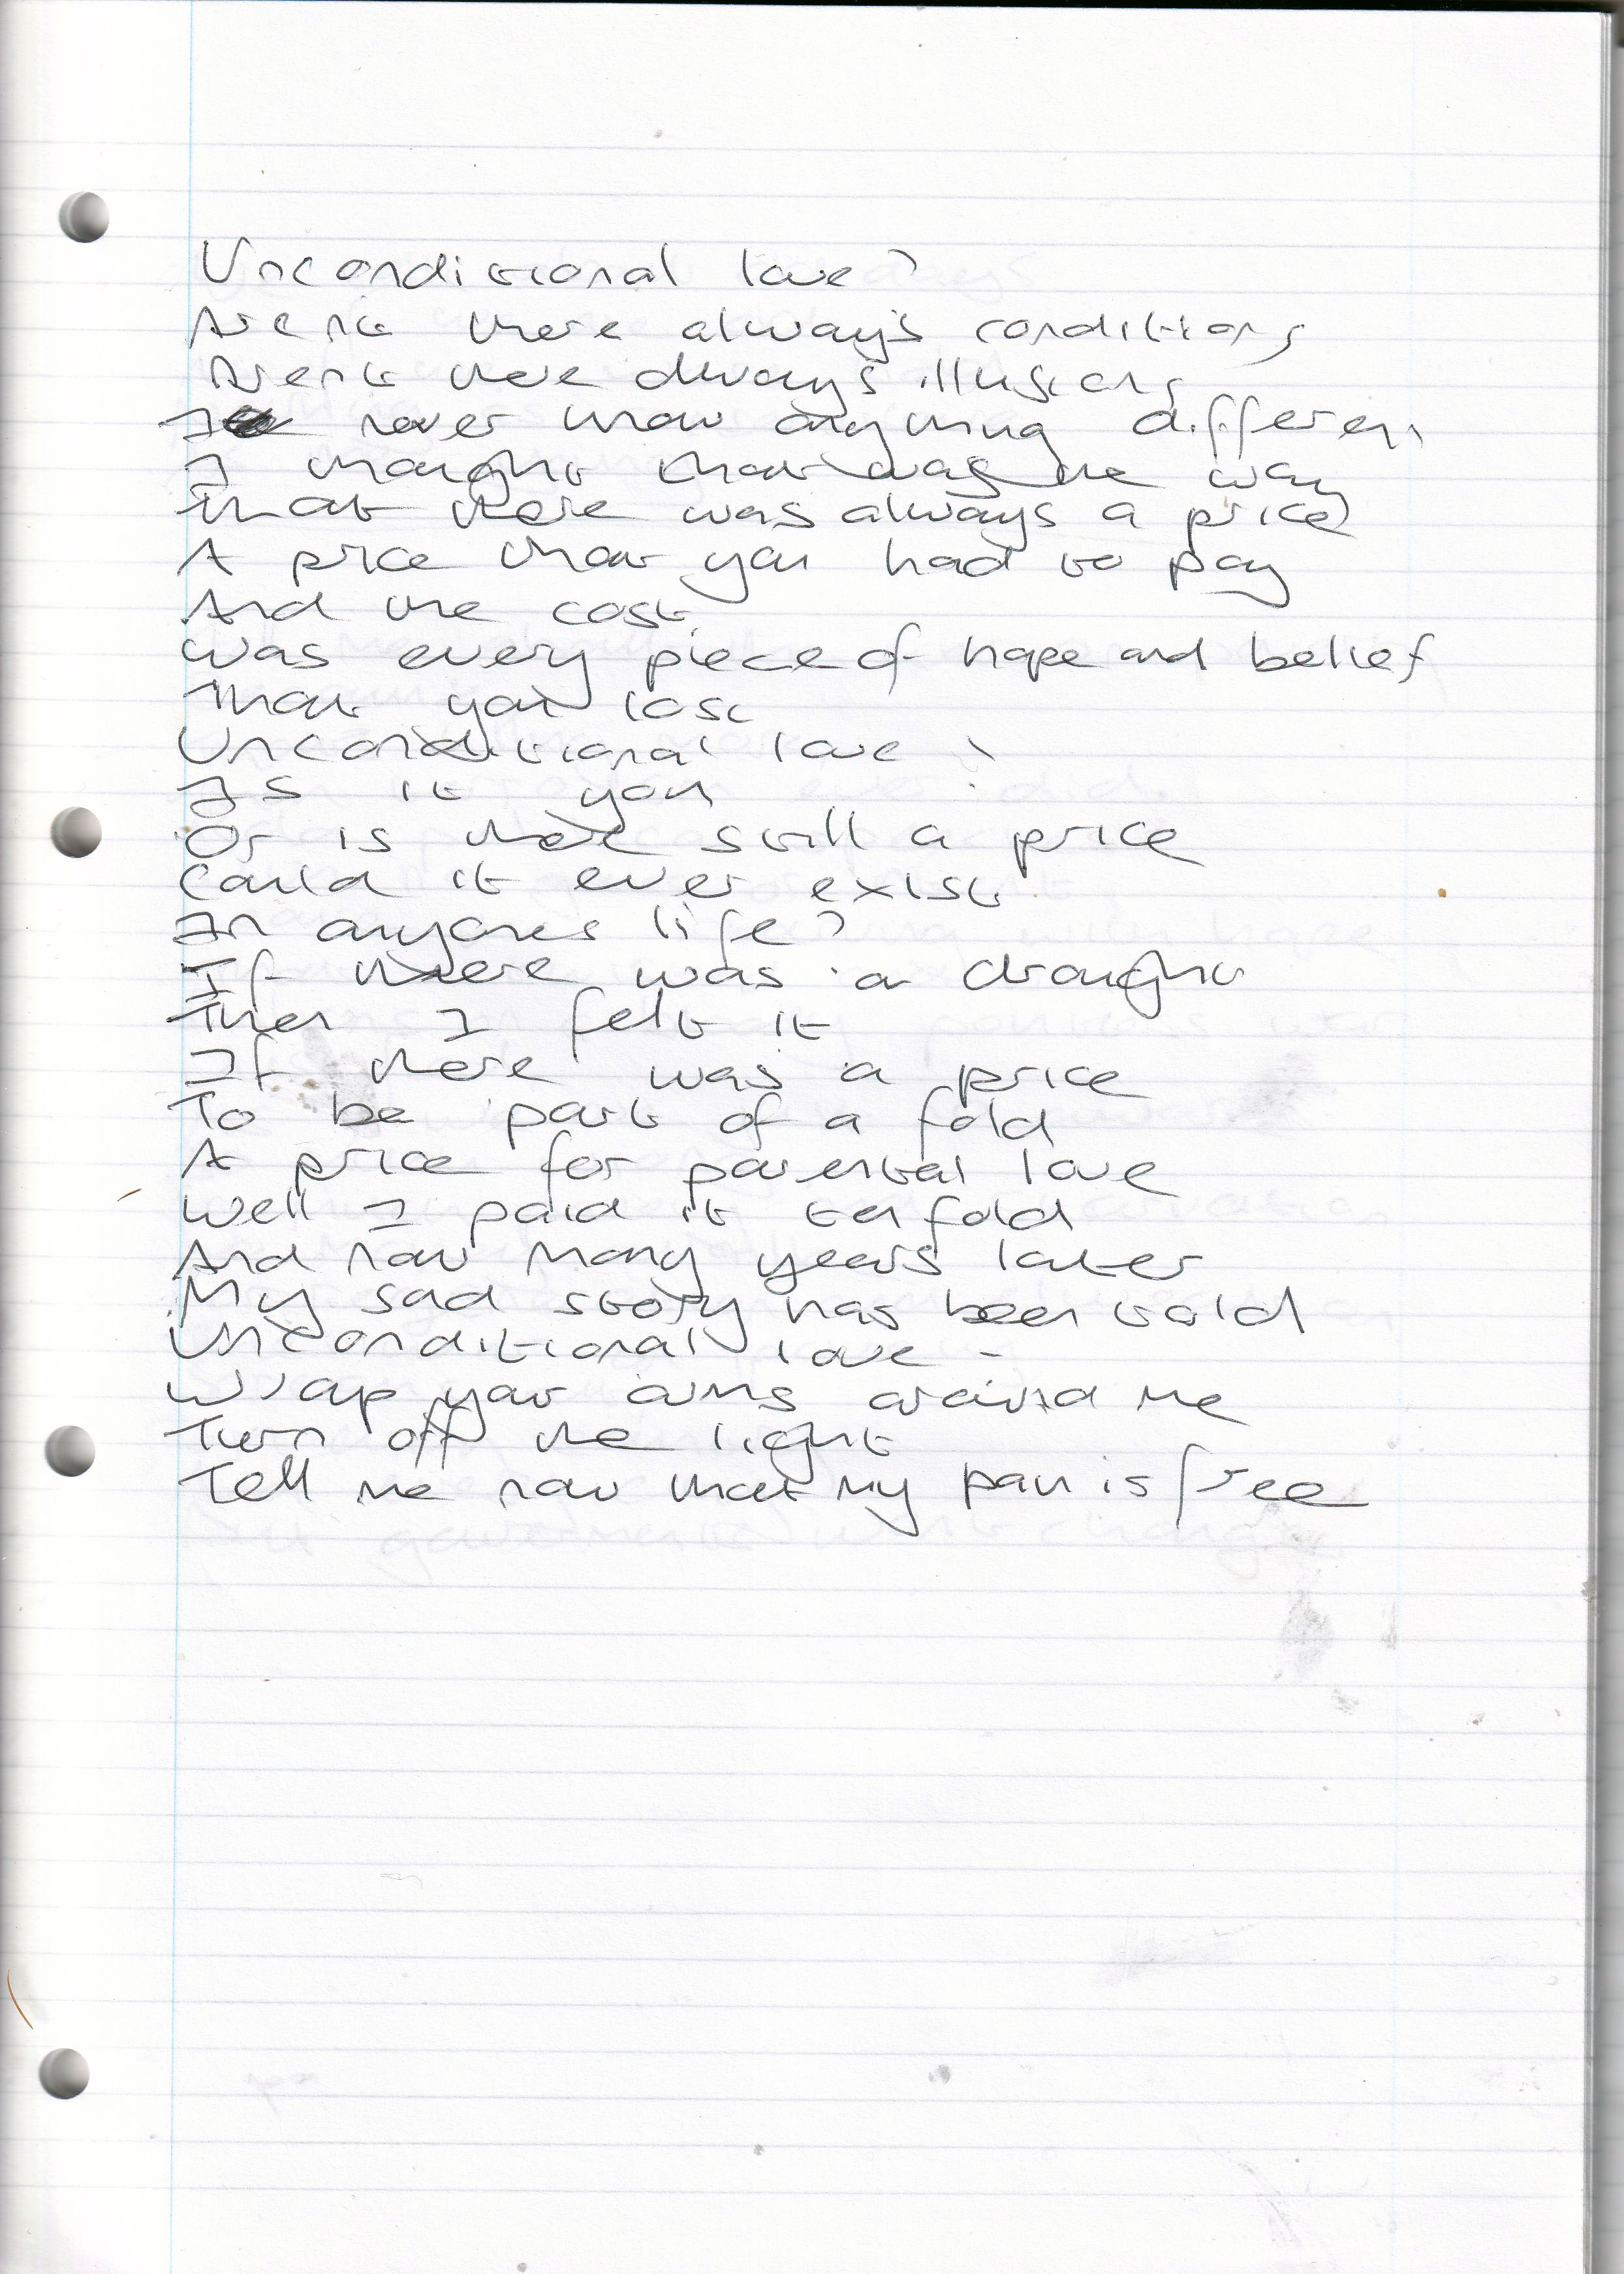 Unconditional love?
Arent there always conditions
Arent there always illusions
I never know anything different
I thought that was the way
That there was always a price
A price that you had to pay
And the cost
was every piece of hope and belief
That you lost
Unconditional love?
Is it you
Or is there still a price
Could it ever exist
In anyones life?
If there was a draught
Then I felt it
If there was a price
To be part of a fold
A price for parental love
Well I paid it tenfold
And now many years later
My sad story has been told
Unconditional love -
Wrap your arms around me
Turn off the light
Tell me now that my pain is free